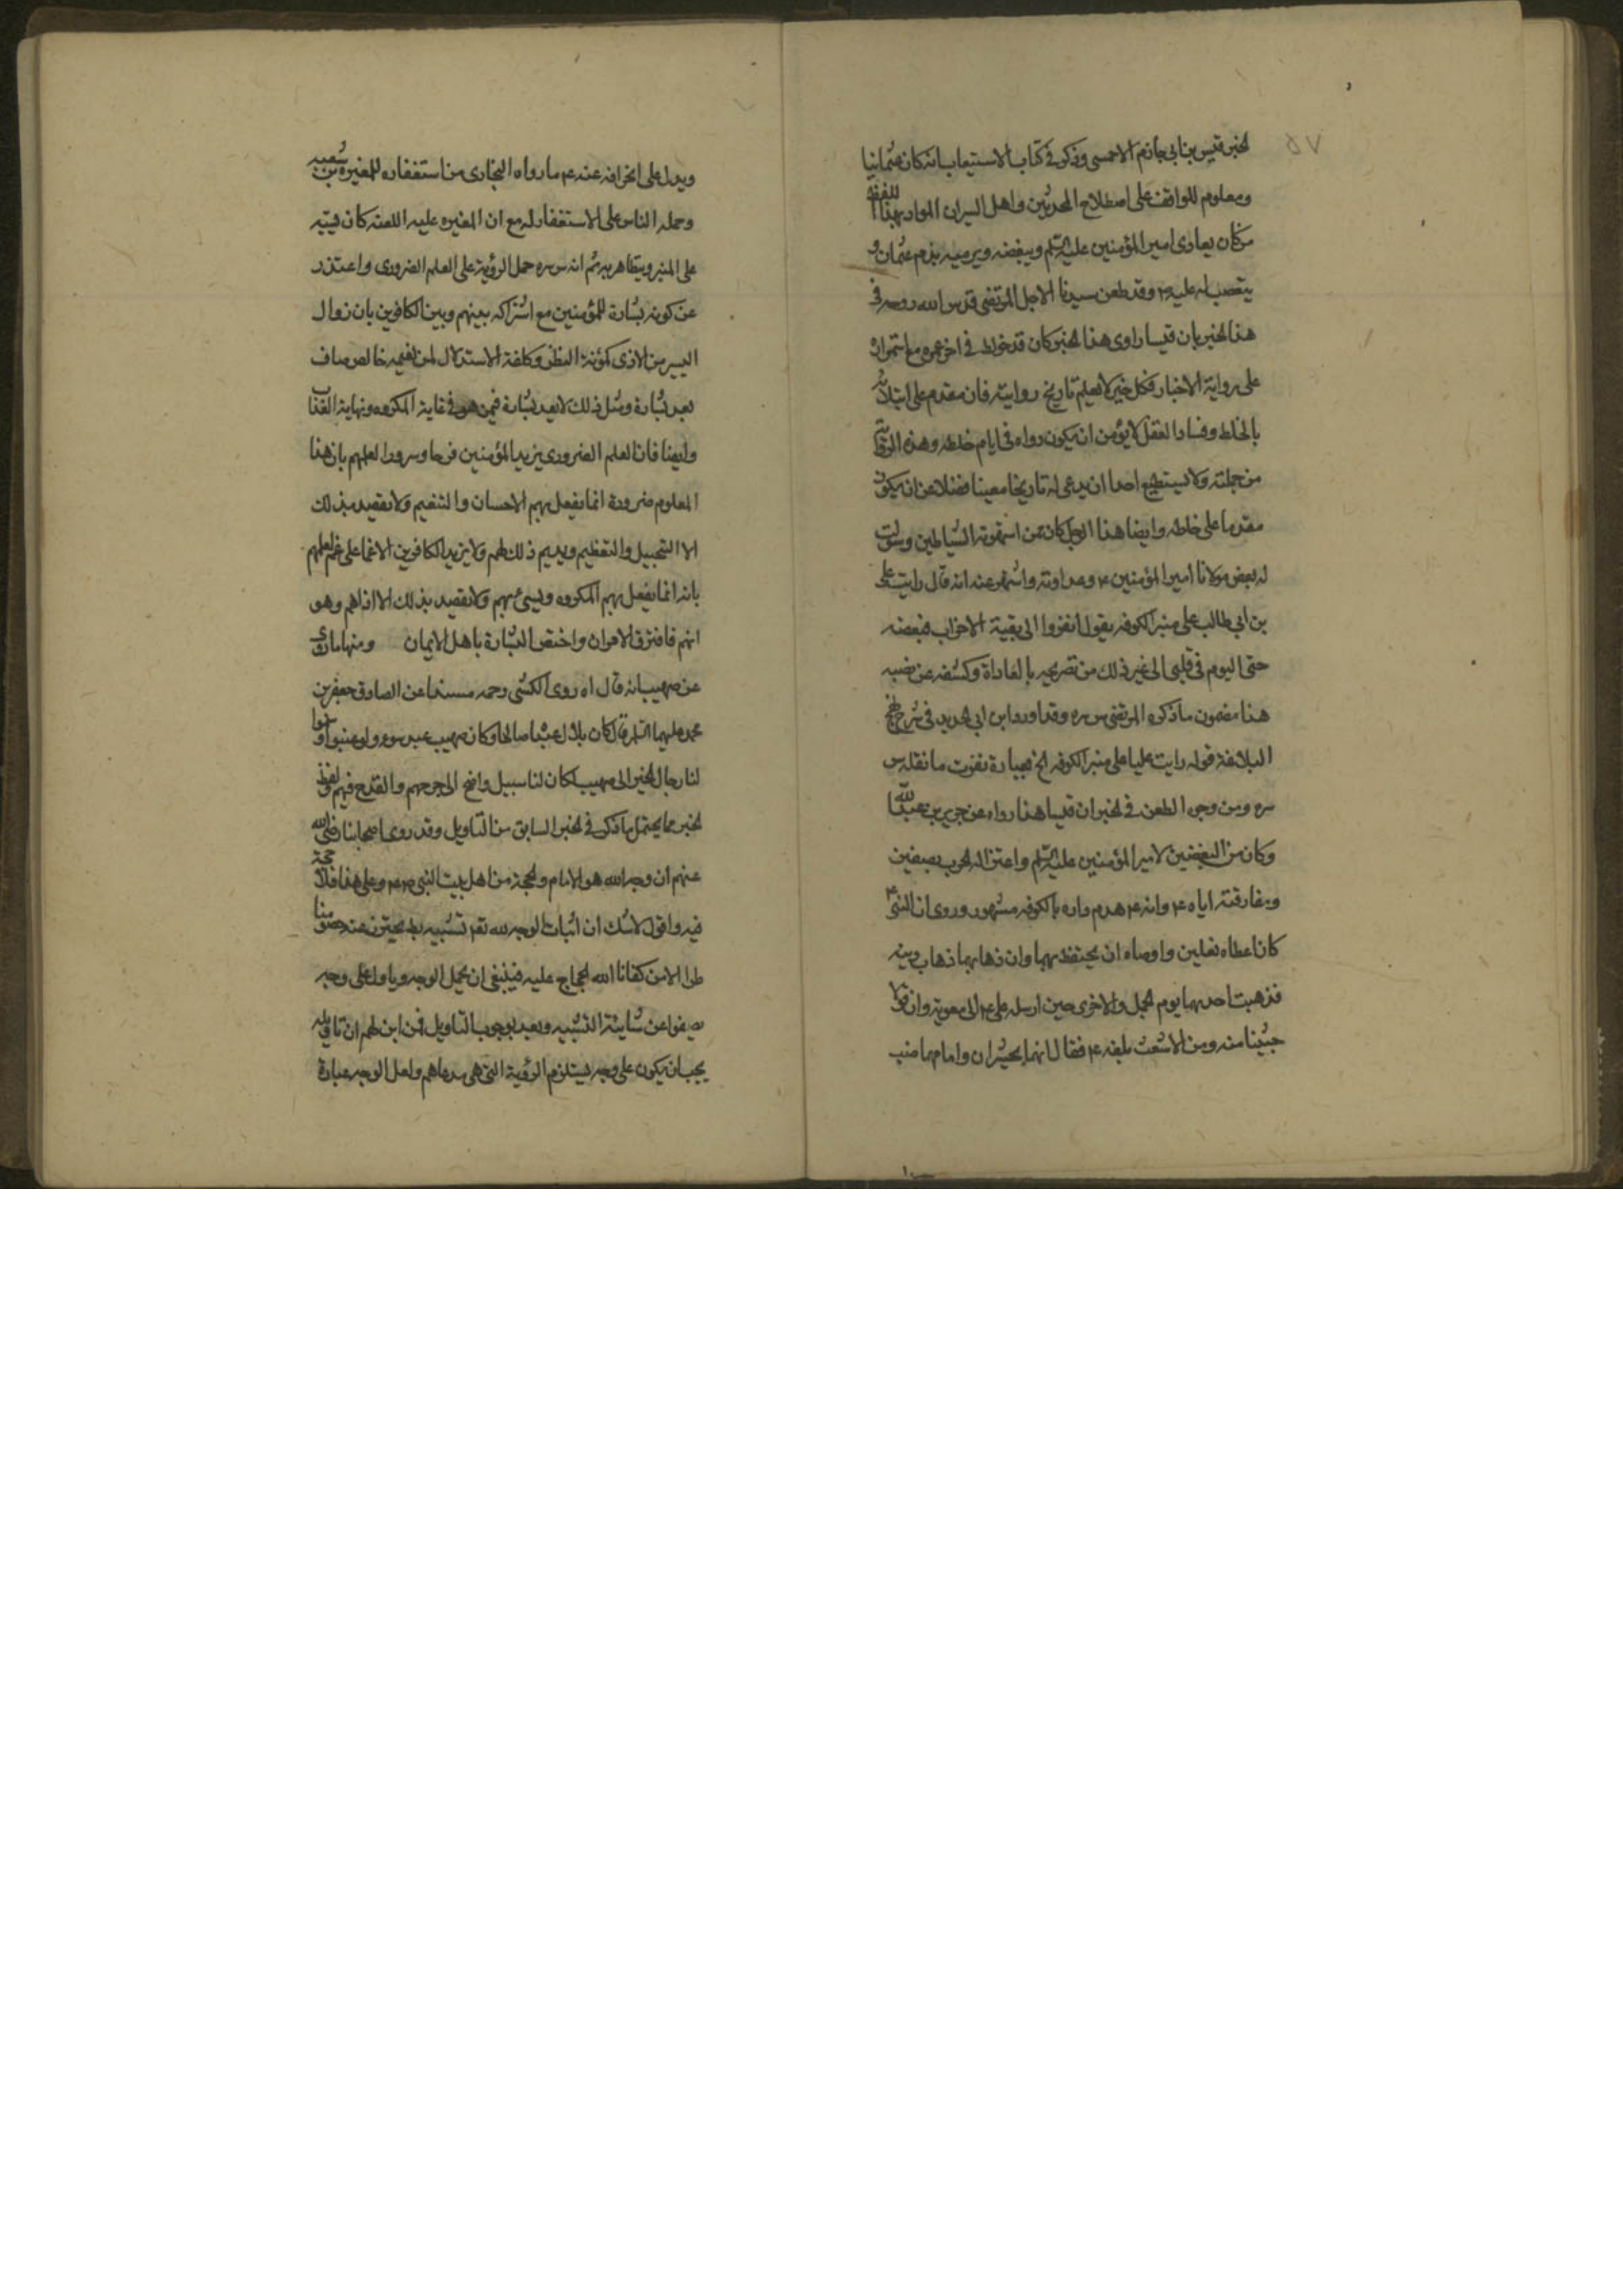 ٥٧
الخبر قيس بن ابى حازم الاحمسى وذكر فى كتاب الاستيعاب انه كان عثمانيا
ومعلوم للواقف على اصطلاح المحدثين واهل السيران المراد بهذا اللفظ
من كان يعادى امير المؤمنين عليه السلم ويبغضه ويرميه بذم عثمان و
يتعصب له عليه ٤ وقد طعن سيدنا الاجل المرتضى قدس الله روحه فى
هذا الخبر بان قيسا راوى هذا الخبر كان قد خولط فى اخر عمره مع استمراره
على رواية الاخبار فكل خبر لا نعلم تاريخ روايته فانه مقدم على ابتلائه
بالخلط وفساد العقل لا يؤمن ان يكون رواه فى ايام خلطه وهذه الرواية
من جملته ولا يستطيع احد ان يدعى له تاريخا معينا فضلا عن ان يكون
مقدما على خلطه وايضا هذا الرجل كان ممن استهوته الشياطين وسولت
له بغض مولانا امير المؤمنين ٤ وعداوته واشتهر عنه انه قال رايت على
بن ابى طالب على منبر الكوفه يقول انفروا الى بقية الاحزاب فبغضه
حتى اليوم فى قلبى الى غير ذلك من تصريحه بالمعاداة وكشفه عن نصبه
هذا مضمون ما ذكره المرتضى س سره وقد اورد ابن ابى الحديد فى شرح نهج
البلاغة قوله رايت عليا على منبر الكوفه الخ بعبارة تفوت ما نقله س
سره ومن وجوه الطعن فى الخبر ان قيسا هذا رواه عن جرير بن عبد الله
وكان من المبغضين لامير المؤمنين عليه السلم واعتزاله الحرب بصفين
ومفارقته اياه ٤ وانه ٤ هدم داره بالكوفه مشهور وروى ان النبى ٤
كان اعطاه نعلين واوصاه ان يحتفظ بهما وان ذهابهما ذهاب دينه
فذهبت احدهما يوم الجمل والاخرى حين ارسله على ٤ الى معوية وان قولا
خبيثا منه ومن الاشعث بلغه ٤ فقال انهما يحشران وامامهما ضب
ويدل على انحرافه عنه ٤ ما رواه البخارى من استغفاره للمغيره بن شعبه
وحمله الناس على الاستغفار له مع ان المغيره عليه اللعنه كان يسبه
على المنبر ويتظاهر به ثم انه س سره حمل الرؤية على العلم الضرورى واعتذر
عن كونه بشارة للمؤمنين مع اشتراكه بينهم وبين الكافرين بان زوال
اليسير من الاذى كمؤنة النظر وكلفة الاستدلال لمن نعيمه خالص صاف
يعد بشارة ومثل ذلك لا يعد بشارة فيمن هو فى غاية المكروه ونهاية العذاب
وايضا فان العلم الضرورى يزيد المؤمنين فرحا وسرورا لعلمهم بان هذا
المعلوم ضرورة انما يفعل بهم الاحسان والتنعيم ولا يقصد بذلك
الا التبجيل والتعظيم ويديم ذلك لهم ولا يزيد الكافرين الا غما على غم لعلمهم
بانه انما يفعل بهم المكروه ويسئ بهم ولا يقصد بذلك الا اذاهم وهو
انهم فافترق الامران واختص البشارة باهل الايمان ومنها ما روى
عن صهيب انه قال اه روى الكشى رحمه مسندا عن الصادق جعفر بن
محمد عليهما السلم قال كان بلال عبدا صالحا وكان صهيب عبد سوء ولو
لنا رجال الخبر الى صهيب لكان لنا سبيل واضح الى جرحهم والقدح فيهم ولفظ
الخبر مما يحتمل ما ذكر فى الخبر السابق من التاويل وقد روى اصحابنا رضى الله
عنهم ان وجه الله هو الامام والحجة من اهل بيت النبى وعلى هذا فلا حجة
فيه واقول لا شك ان اثبات الوجه لله تعه تشبيه يحترز عنه خصومنا
طرا الا من كفانا الله الحجاج عليه فينبغى ان يحمل الوجه ويأول على وجه
يصفوا عن شايبة التشبيه وبعد وجوب التاويل فمن اين لهم ان تاويله
يجب ان يكون على وجه يستلزم الرؤية التى هى مدعاهم ولعل الوجه عبارة